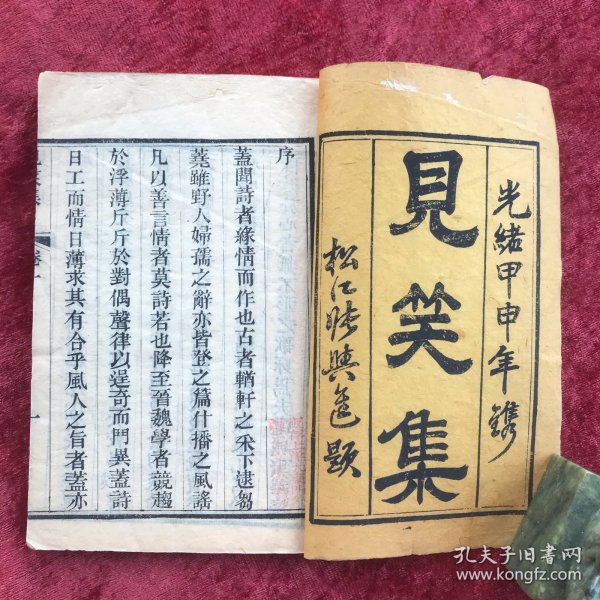 光緒甲申年鐫
見笑集
題
序
蓋聞詩者緣情而作也古者輶軒之采下逮芻
蕘雖野人婦孺之辭亦皆登之篇什播之風謠
凡以善言情者莫詩若也降至晉魏學者競趨
於浮薄斤斤於對偶聲律以逞奇而鬥異蓋詩
日工而情日薄求其有合乎風人之旨者蓋亦
一
孔夫子旧书网
www.kongfz.com